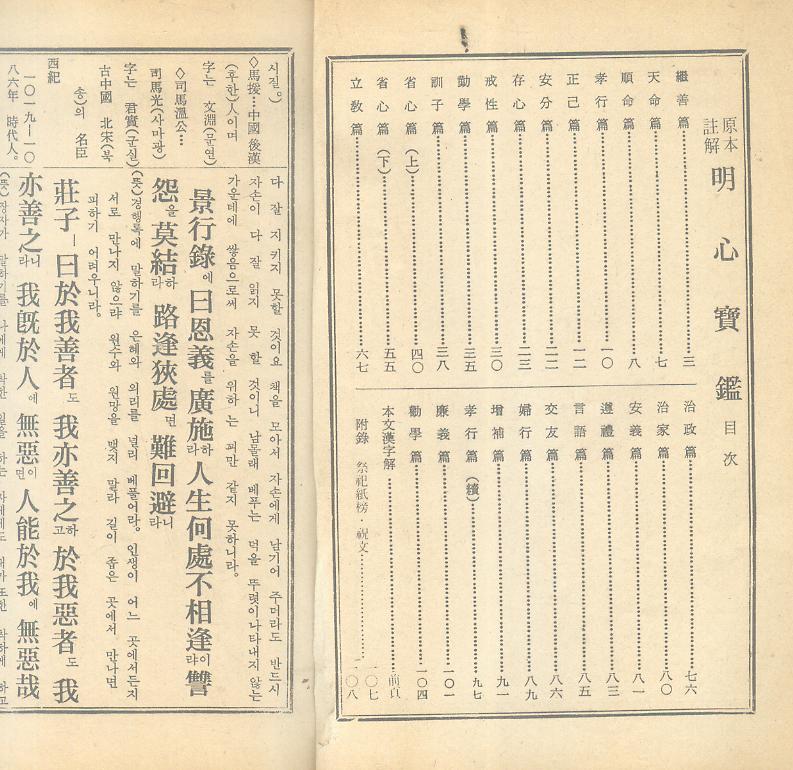 原本
註解
明心寶鑑 目次
繼善篇 三
天命篇 七
順命篇 八
孝行篇 一〇
正己篇 一二
安分篇 二二
存心篇 二三
戒性篇 三〇
勤學篇 三五
訓子篇 三八
省心篇(上) 四〇
省心篇(下) 五五
立敎篇 六七
治政篇 七六
治家篇 八〇
安義篇 八一
遵禮篇 八三
言語篇 八五
交友篇 八六
婦行篇 八九
增補篇 九一
孝行篇(續) 九七
廉義篇 一〇一
勸學篇 一〇四
本文漢字解 前頁
附錄 祭祀紙榜·祝文 一〇七
一〇八
시질。)
◇馬援…中國 後漢
(후한)人이며
字는 文淵(문연)
◇司馬溫公…
司馬光(사마광)
字는 君實(군실)
古中國 北宋(북
송)의 名臣
西紀
一〇一九—一〇
八六年 時代人。
다 잘 지키지 못할 것이요 책을 모아서 자손에게 남기어 주더라도 반드시
자손이 다 잘 읽지 못 할 것이니 남몰래 베푸는 덕을 뚜렷이나타내지 않는
가운데에 쌓음으로써 자손을 위하 는 꾀만 같지 못하니라。
景行錄에 曰恩義를 廣施하라 人生何處不相逢이랴 讐
怨을 莫結하라 路逢狹處면 難回避니라
(뜻) 경행록에 말하기를 은혜와 의리를 널리 베풀어라。 인생이 어느 곳에서든지
서로 만나지 않으랴 원수와 원망을 맺지 말라 길이 좁은 곳에서 만나면
피하기 어려우니라。
莊子ㅣ 曰於我善者도 我亦善之하고 於我惡者도 我
亦善之니라 我旣於人에 無惡이면 人能於我에 無惡哉
(뜻) 장자가 말하기를 나에게